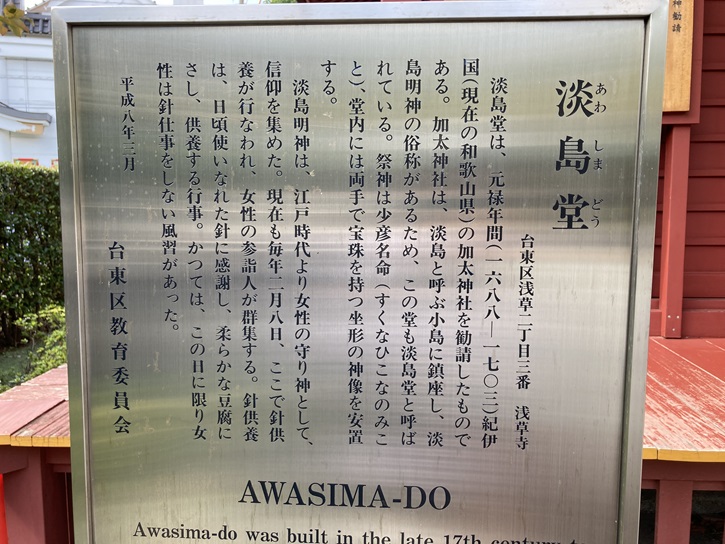 神勧請
淡島堂
あわしまどう
台東区浅草二丁目三番　浅草寺
淡島堂は、元禄年間(一六八八―一七〇三)紀伊
国(現在の和歌山県)の加太神社を勧請したもので
ある。加太神社は、淡島と呼ぶ小島に鎮座し、淡
島明神の俗称があるため、この堂も淡島堂と呼ば
れている。祭神は少彦名命(すくなひこなのみこ
と)、堂内には両手で宝珠を持つ坐形の神像を安置
する。
淡島明神は、江戸時代より女性の守り神として、
信仰を集めた。現在も毎年二月八日、ここで針供
養が行なわれ、女性の参詣人が群集する。針供養
は、日頃使いなれた針に感謝し、柔らかな豆腐に
さし、供養する行事。かつては、この日に限り女
性は針仕事をしない風習があった。
平成八年三月
台東区教育委員会
AWASIMA-DO
Awasima-do was built in the late 17th century to